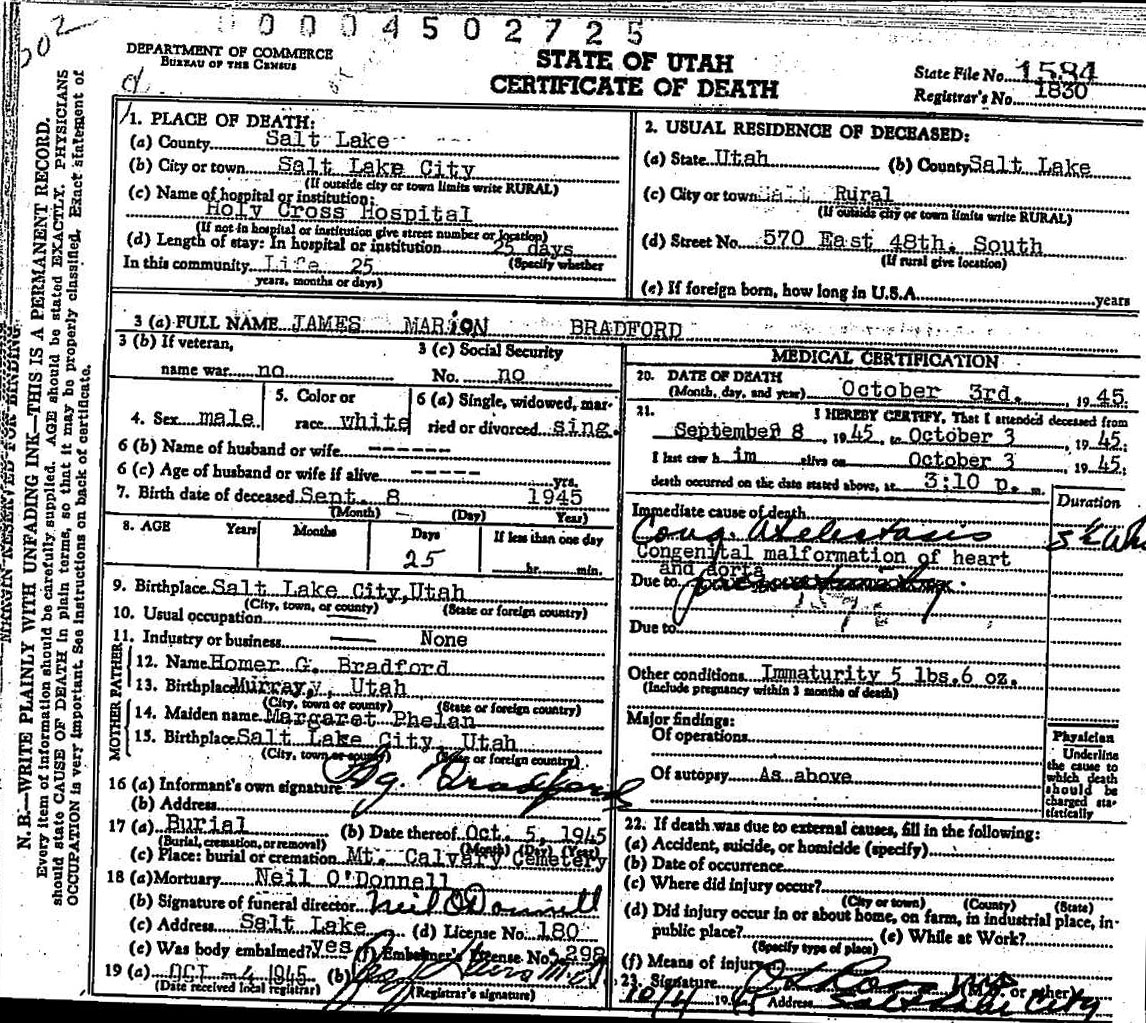 202
0004502725
DEPARTMENT OF COMMERCE
BUREAU OF THE CENSUS
STATE OF UTAH
CERTIFICATE OF DEATH
State File No. 1584
Registrar's No. 1830
N. B.—WRITE PLAINLY WITH UNFADING INK—THIS IS A PERMANENT RECORD.
Every item of information should be carefully supplied. AGE should be stated EXACTLY. PHYSICIANS
should state CAUSE OF DEATH in plain terms, so that it may be properly classified. Exact statement of
OCCUPATION is very important. See instructions on back of certificate.
MARGIN RESERVED FOR BINDING
1. PLACE OF DEATH:
(a) County Salt Lake
(b) City or town Salt Lake City
(If outside city or town limits write RURAL)
(c) Name of hospital or institution:
Holy Cross Hospital
(If not in hospital or institution give street number or location)
(d) Length of stay: In hospital or institution 25 days
(Specify whether
In this community Life 25
years, months or days)
2. USUAL RESIDENCE OF DECEASED:
(a) State Utah (b) County Salt Lake
(c) City or town Rural
(If outside city or town limits write RURAL)
(d) Street No. 570 East 48th. South
(If rural give location)
(e) If foreign born, how long in U.S.A. years
3 (a) FULL NAME JAMES MARION BRADFORD
3 (b) If veteran,
name war no
3 (c) Social Security
No. no
4. Sex male
5. Color or
race white
6 (a) Single, widowed, mar-
ried or divorced sing.
6 (b) Name of husband or wife ------
6 (c) Age of husband or wife if alive ----- yrs.
7. Birth date of deceased Sept. 8 1945
(Month) (Day) Year)
8. AGE Years Months Days If less than one day
25
hr. min.
9. Birthplace Salt Lake City, Utah
(City, town, or county) (State or foreign country)
10. Usual occupation —
11. Industry or business — None
FATHER
12. Name Homer G. Bradford
13. Birthplace Murray, Utah
(City, town or county) (State or foreign country)
MOTHER
14. Maiden name Margaret Phelan
15. Birthplace Salt Lake City, Utah
(City, town or county) (State or foreign country)
16 (a) Informant's own signature H.G. Bradford
(b) Address
17 (a) Burial (b) Date thereof Oct. 5, 1945
(Burial, cremation, or removal) (Month) (Day) (Year)
(c) Place: burial or cremation Mt. Calvary Cemetery
18 (a) Mortuary Neil O'Donnell
(b) Signature of funeral director Neil O'Donnell
(c) Address Salt Lake (d) License No. 180
(e) Was body embalmed? yes (f) Embalmer's License No. 298
19 (a) OCT -4 1945 (b)
(Date received local registrar) (Registrar's signature)
MEDICAL CERTIFICATION
20. DATE OF DEATH
(Month, day, and year) October 3rd. 1945.
21. I HEREBY CERTIFY, That I attended deceased from
September 8, 1945, to October 3, 1945;
I last saw h im alive on October 3, 1945;
death occurred on the date stated above, at 3:10 p. m.
Duration
Immediate cause of death
Cong. Atelectasis
Congenital malformation of heart
and aorta
Due to
Due to
Other conditions Immaturity 5 lbs. 6 oz.
(Include pregnancy within 3 months of death)
Major findings:
Of operations
Of autopsy As above
Physician
Underline
the cause to
which death
should be
charged sta-
tistically
22. If death was due to external causes, fill in the following:
(a) Accident, suicide, or homicide (specify)
(b) Date of occurrence
(c) Where did injury occur?
(City or town) (County) (State)
(d) Did injury occur in or about home, on farm, in industrial place, in
public place? (e) While at Work?
(Specify type of place)
(f) Means of injury
23. Signature (M.D. or other)
10/4 19 Address Salt Lake City